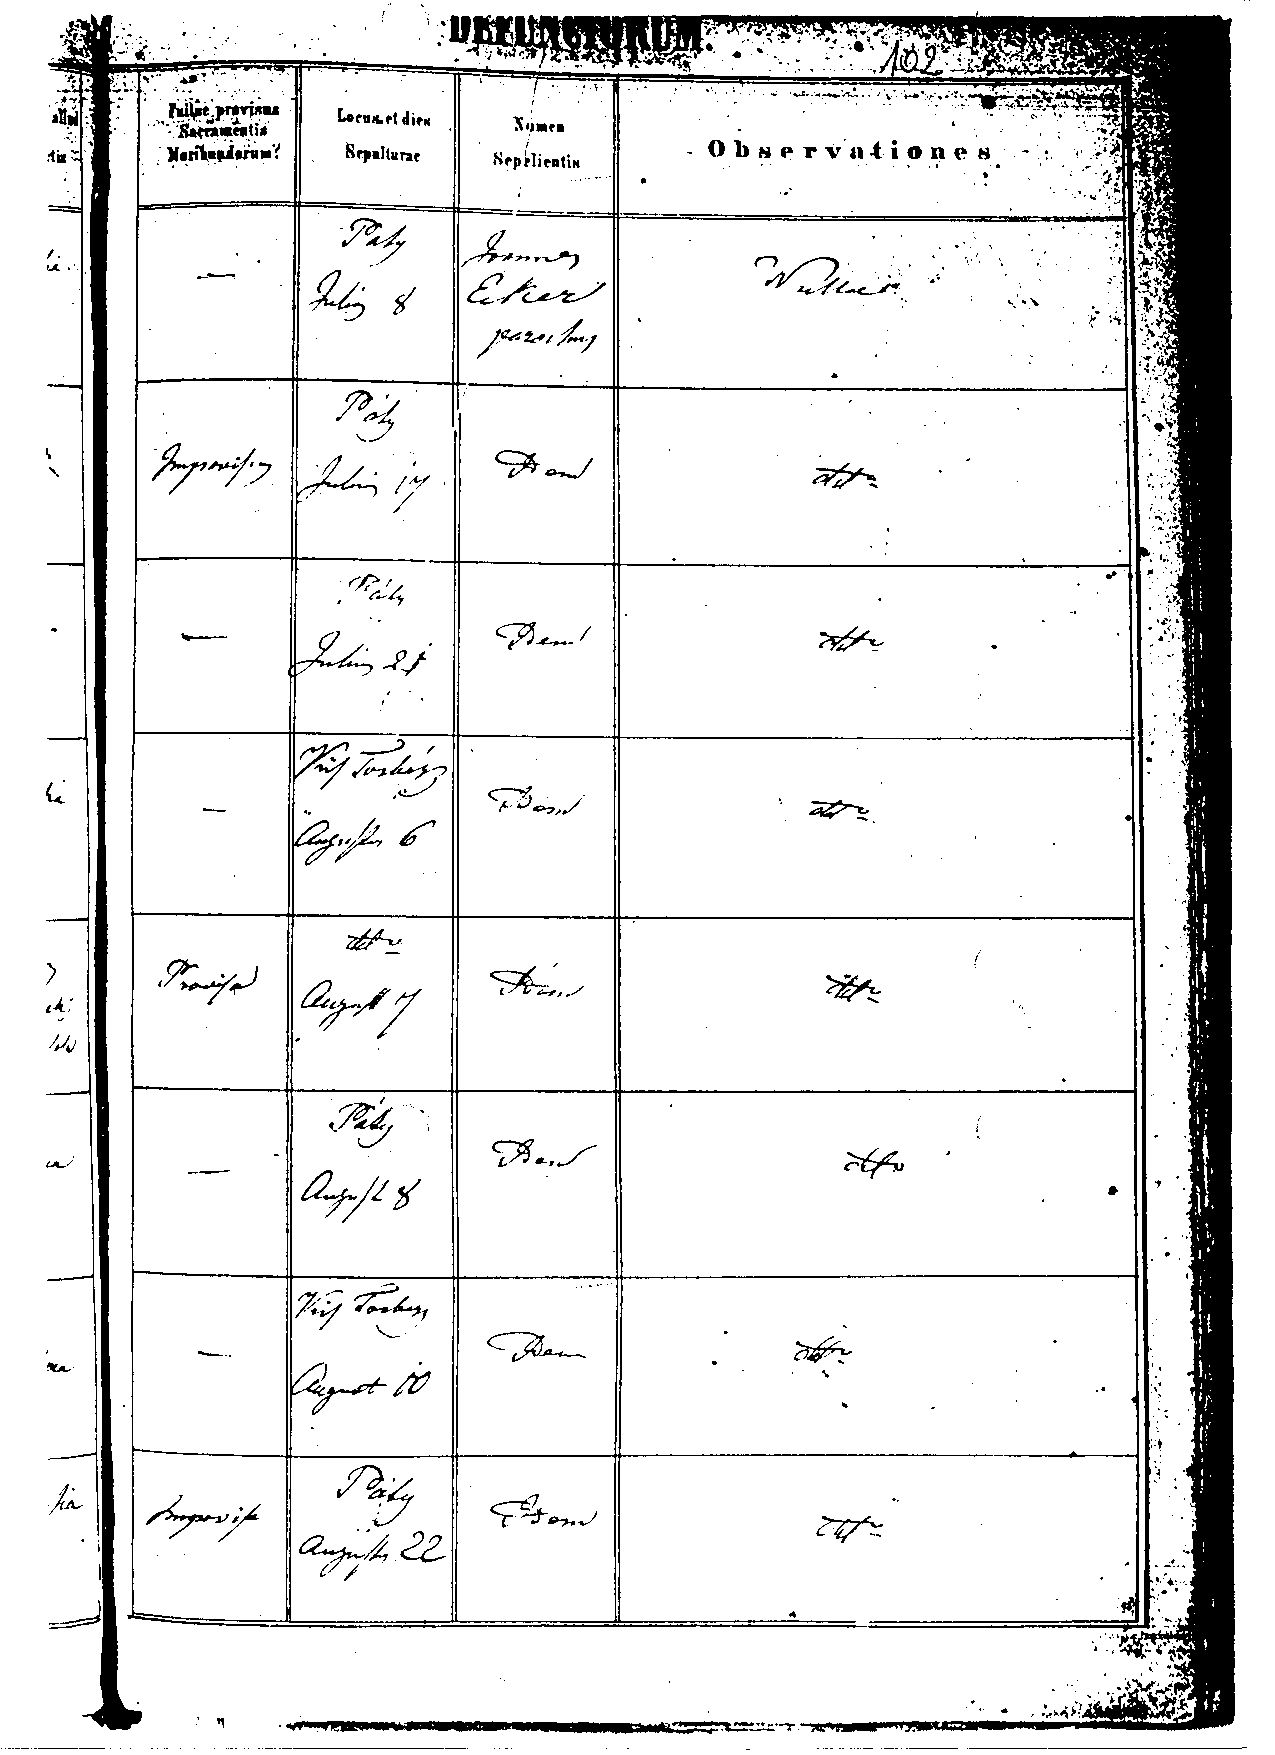 DEFUNCTORUM.
102
Fuitne provisus
Sacramentis
Moribundorum?
Locus et dies
Sepulturae
Nomen
Sepelientis
Observationes
—
Páty
Julius 8
Joannes
Eker
parochus
Nullae
Improvisus
Páty
Julius 17
Idem
dtto
—
Páty
Julius 21
Idem
dtto
—
Kis Torbágy
Augustus 6
Idem
dtto
Provisa
dtto
August 7
Idem
dtto
—
Páty
August 8
Idem
dtto
—
Kis Torbágy
August 10
Idem
dtto
Improvisa
Páty
Augustus 22
Idem
dtto